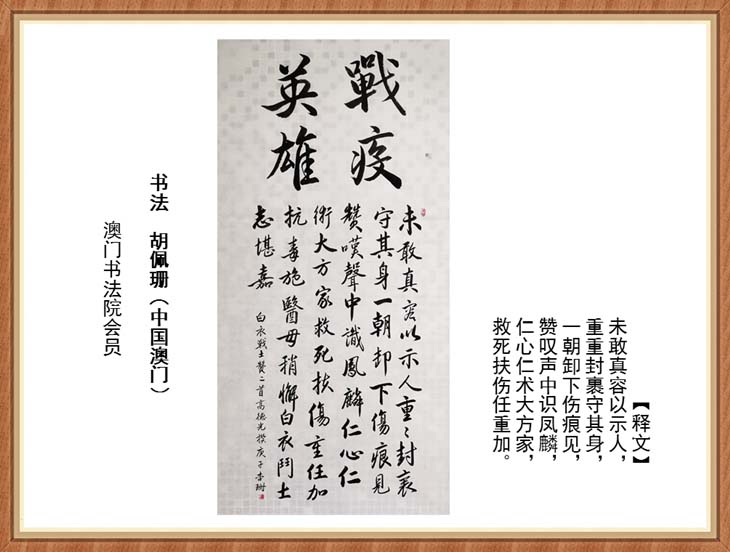 【释文】
未敢真容以示人，
重重封裹守其身，
一朝卸下伤痕见，
赞叹声中识凤麟，
仁心仁术大方家，
救死扶伤任重加。
戰疫
英雄
未敢真容以示人重〻封裹
守其身一朝卸下傷痕見
贊嘆聲中識鳳麟仁心仁
術大方家救死扶傷重任加
抗毒施醫毋稍懈白衣鬥士
志堪嘉
白衣戰士贊二首高德光撰庚子
书法　胡佩珊（中国澳门）
澳门书法院会员